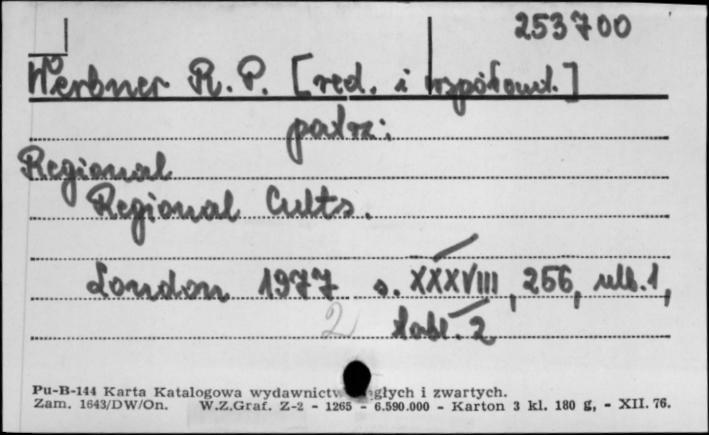 253700
Werbner R. P. [red. i współaut.]
patrz:
Regional
Regional Cults.
London 1977 s. XXXVIII, 256, nlb. 1,
2 tabl. 2
Pu-B-144 Karta Katalogowa wydawnictw głych i zwartych.
Zam. 1643/DW/On. W.Z.Graf. Z-2 - 1265 - 6.590.000 - Karton 3 kl. 180 g, - XII. 76.